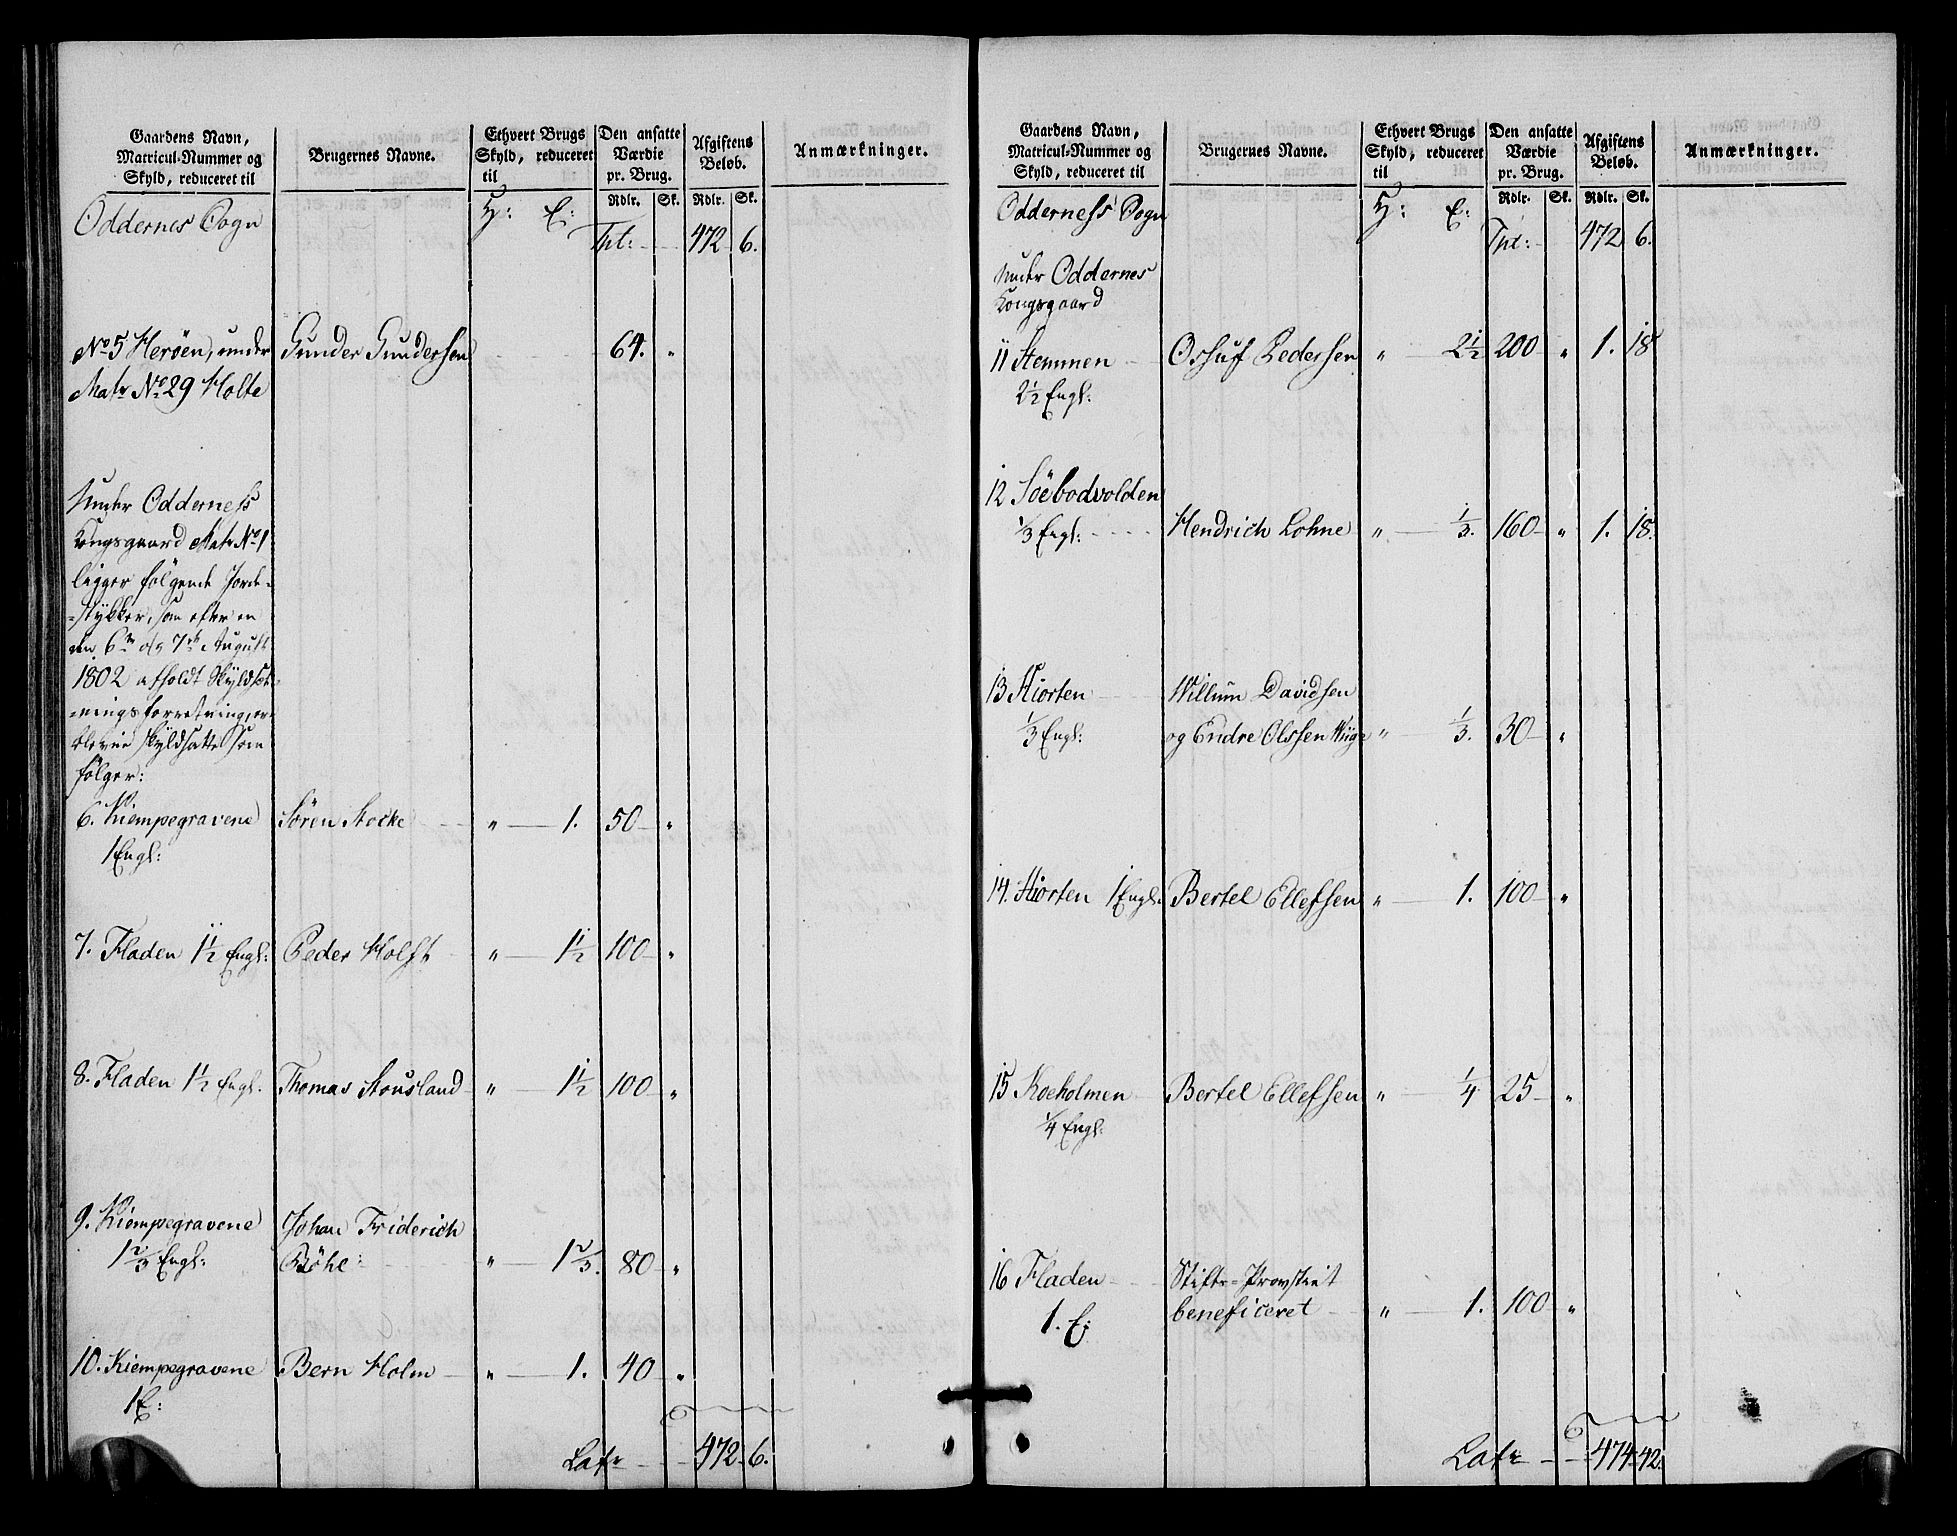 Gaardens Navn,
Matricul-Nummer og
Skyld, reduceret til
Brugernes Navne.
Ethvert Brugs
Skyld, reduceret
til
Den ansatte
Værdie
pr. Brug.
Afgiftens
Beløb.
Anmærkninger.
Rdlr. Sk. Rdlr. Sk.
Oddernes Sogn H: E:
Tpt: 472 6.
No 5 Heröen, under Gunder Gundersen 64. "
Matr No 29 Holte
Under Odderness
Kongsgaard Matr No 1
ligger følgende Jorde-
=stykker, som efter en
den 6te og 7de August
1802 afholdt Skyldsæt-
=ningsforretning, er
blevne skyldsatte som
følger:
6. Kiempegravene Sören Stocke " 1. 50 "
1 Engl:
7. Fladen 1½ Engl: Peder Holst " 1½ 100 "
8. Fladen 1½ Engl. Thomas Stousland " 1½ 100 "
9. Kiempegravene Johan Friderich
1⅔ Engl: Böhe: " 1⅔. 80 "
10. Kiempegravene Bern Holm " 1. 40 "
1 E:
Latr 472 6.
Gaardens Navn,
Matricul-Nummer og
Skyld, reduceret til
Brugernes Navne.
Ethvert Brugs
Skyld, reduceret
til
Den ansatte
Værdie
pr. Brug.
Afgiftens
Beløb.
Anmærkninger.
Rdlr. Sk. Rdlr. Sk.
Odderness Sogn H: E:
Tpt: 472 6.
Under Oddernes
Kongsgaard
11 Stemmen Osuf Pedersen " 2½ 200 " 1. 18
2½ Engl:
12 Söebodvolden
⅓ Engl: Hendrich Lohne " ⅓. 160 " 1. 18.
13 Hiorten Willum Davidsen
⅓ Engl: og Endre Olssen Wiige " ⅓. 30 "
14. Hiorten 1 Engl. Bertel Ellefsen " 1. 100 "
15 Koeholmen Bertel Ellefsen " ¼ 25 "
¼ Engl:
16 Fladen Stifts-Provstiet
1. E: beneficeret " 1. 100 "
Latr 474 42.